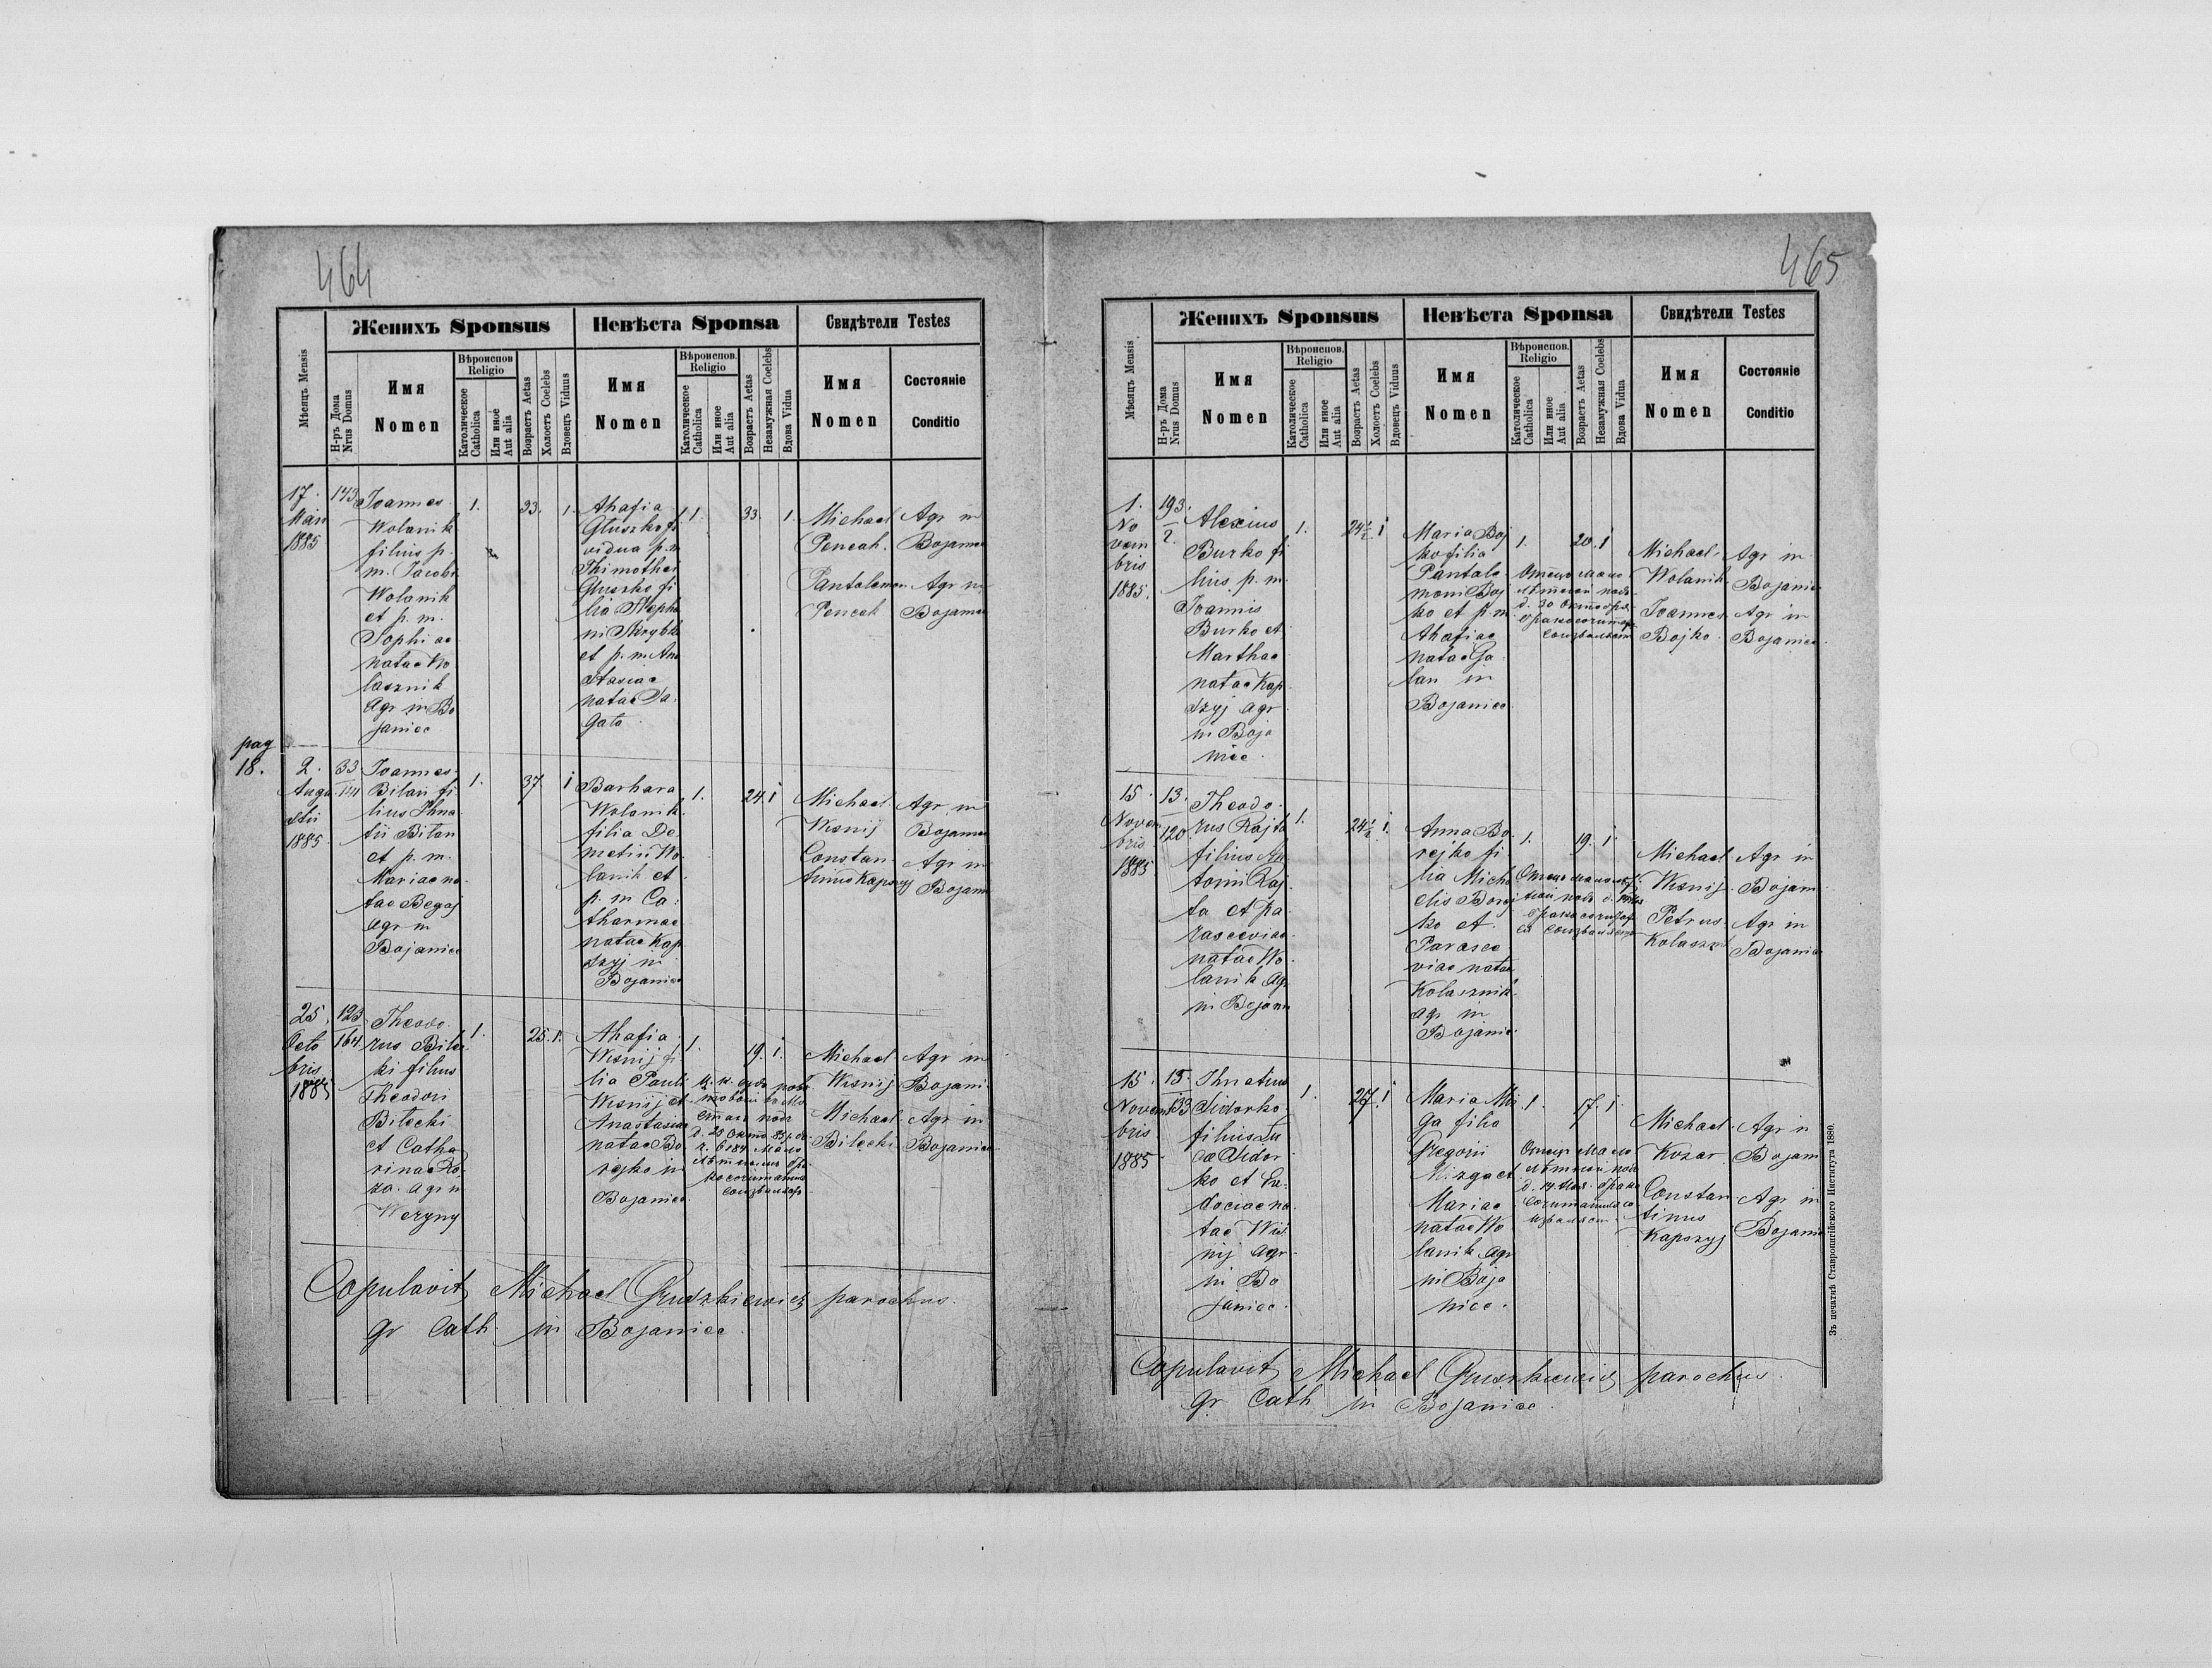 464
Женихъ Sponsus
Невѣста Sponsa
Свидѣтели Testes
Мѣсяцъ Mensis
Н-ръ Дома
Nrus Domus
Имя
Nomen
Вѣроиспов
Religio
Католическое
Catholica
Или иное
Aut alia
Возрастъ Aetas
Холостъ Coelebs
Вдовецъ Viduus
Имя
Nomen
Вѣроиспов.
Religio
Католическое
Catholica
Или иное
Aut alia
Возрастъ Aetas
Незамужная Coelebs
Вдова Vidua
Имя
Nomen
Состояніе
Conditio
17.
Maii
1885
143
Joannes
Wolanik
filius p.
m. Jacobi
Wolanik
et p. m.
Sophiae
natae Ko
lasznik
Agr in Bo
janiec
1.
33.
1.
Ahafia
Gluszko fi
vidua p. m
Thimothei
Gluszko fi
lia Stepha
ni Skrybka
et p. m. Ana
stasiae
natae Sa
gata
1.
33.
1.
Michael
Pencak.
Pantalemon
Pencak
Agr in
Bojaniec
Agr in
Bojaniec
pag
18.
2.
Augu
stii
1885
33
141
Joannes
Bilan fi
lius Ihna
tii Bilan
et p. m.
Mariae na
tae Begaj
Agr in
Bojaniec
1.
37
1
Barbara
Wolanik
filia De
metrii Wo
lanik et
p. m Ca
tharinae
natae Kap
szyj in
Bojaniec
1.
24.
1
Michael
Wisnij
Constan
tinus Kapszyj
Agr in
Bojaniec
Agr in
Bojaniec
25.
Octo
bris
1885
123
164
Theodo
rus Bilec
ki filius
Theodori
Bilecki
et Catha
rinae Ko
za. Agr in
Weryny
1.
25.
1.
Ahafia
Wisnij fi
lia Pauli
Wisnij et
Anastasiae
natae Bo
rejko in
Bojaniec.
1.
19.
1.
Michael
Wisnij
Michael
Bilecki
Agr in
Bojani
Agr in
Bojaniec
Copulavit Michael Gruszkiewicz parochus.
gr Cath. in Bojaniec
465
Женихъ Sponsus
Невѣста Sponsa
Свидѣтели Testes
Мѣсяцъ Mensis
Н-ръ Дома
Nrus Domus
Имя
Nomen
Вѣроиспов.
Religio
Католическое
Catholica
Или иное
Aut alia
Возрастъ Aetas
Холостъ Coelebs
Вдовецъ Viduus
Имя
Nomen
Вѣроиспов.
Religio
Католическое
Catholica
Или иное
Aut alia
Возрастъ Aetas
Незамужная Coelebs
Вдова Vidua
Имя
Nomen
Состояніе
Conditio
1.
No
vem
bris
1885.
193.
2.
Alexius
Burko fi
lius p. m.
Joannis
Burko et
Marthae
natae Kap
szyj agr
in Boja
niec.
1.
24½
1
Maria Boj
ko filia
Pantale
moni Boj
ko et p. m.
Ahafiae
natae Ga
lan in
Bojaniec.
1.
20.
1
Michael
Wolanik
Joannes
Bojko.
Agr in
Bojaniec
Agr in
Bojaniec
15.
Novem
bris
1885
13.
120
Theodo
rus Rajta
filius An
tonii Raj
ta et Pa
rasceviae
natae Wo
lanik Agr
in Bojani
1.
24½
1.
Anna Bo
rejko fi
lia Micha
elis Borej
ko et
Parasce
viae natae
Kolasznik
agr in
Bojaniec
1.
19.
1.
Michael
Wisnij
Petrus
Kolaszn
Agr in
Bojani
Agr in
Bojaniec
15.
Novem
bris
1885
15.
133
Ihnatius
Sidorko
filius Lu
cae Sidor
ko et Eu
dociae na
tae Wiś
nij agr
in Bo
janiec.
1.
27.
1
Maria Miz
ga filia
Gregorii
Mizga et
Mariae
natae Wo
lanik agr
in Boja
niec.
1.
17.
1.
Michael
Kozar
Constan
tinus
Kapszyj
Agr in
Bojani
Agr in
Bojani
Copulavit Michael Gruszkiewicz parochus.
gr Cath in Bojaniec.
Зъ печатнѣ Ставропигійского Института 1880.